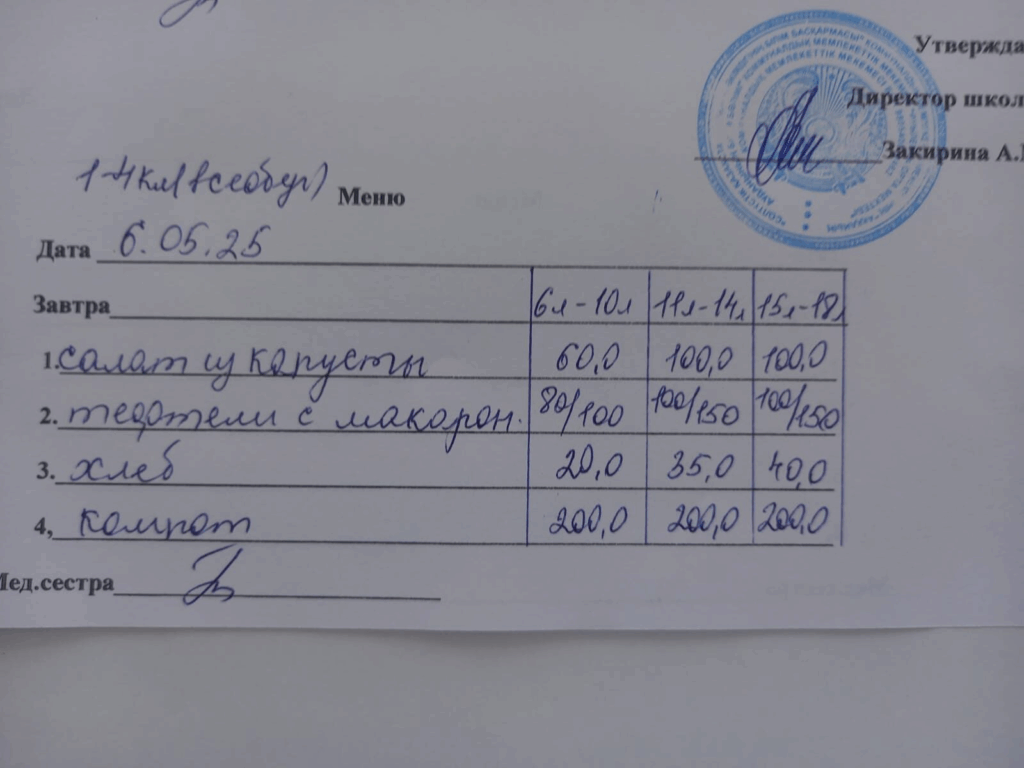 Утвержда
Директор школ
Закирина А.
1-4 кл (всеобуч)
Меню
Дата 6.05.25
Завтра 6л-10л 11л-14л 15л-18л
1. салат из капусты 60,0 100,0 100,0
2. тефтели с макарон. 80/100 100/150 100/150
3. хлеб 20,0 35,0 40,0
4, компот 200,0 200,0 200,0
Мед.сестра